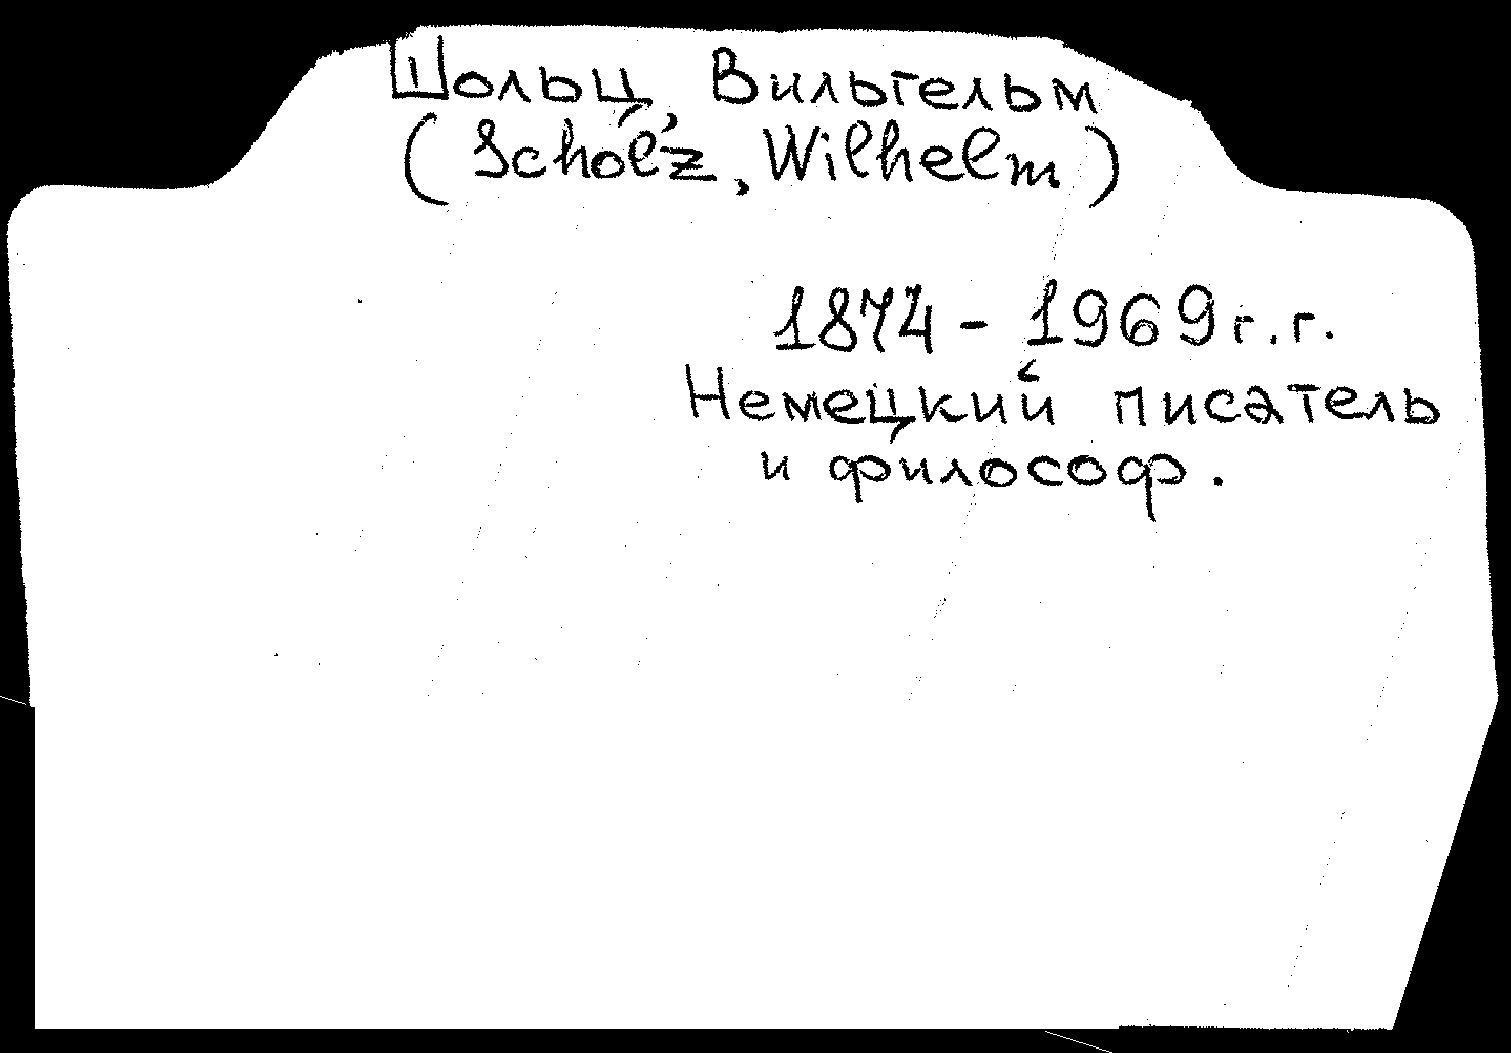 Шольц, Вильгельм
(Scholz, Wilhelm)
1874 - 1969 г.г.
Немецкий писатель
и философ.